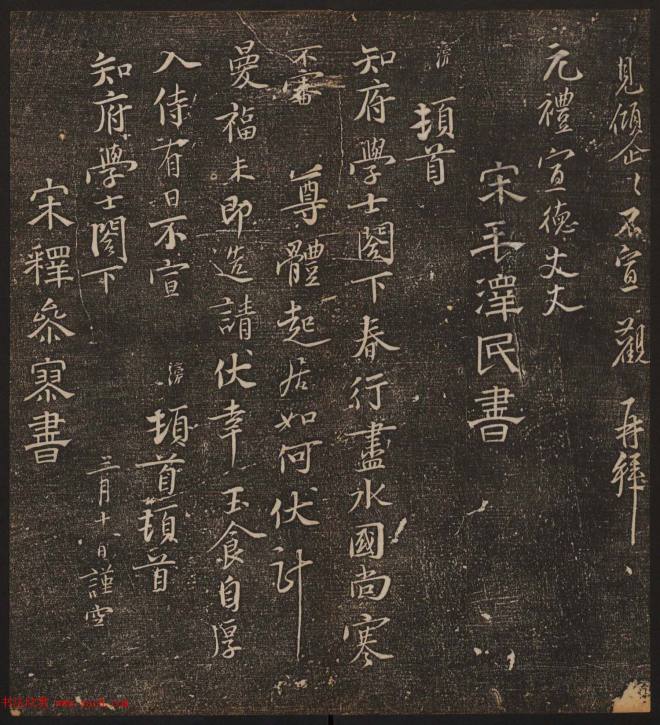 見傾企〻不宣 觀 再拜
元禮宣德丈丈
宋毛澤民書
滂 頓首
知府學士閤下春行盡水國尚寒
不審 尊體起居如何伏計
曼福未即造請伏幸 玉食自厚
入侍有日不宣 滂 頓首頓首
知府學士閤下 三月十八日謹空
宋釋參寥書
www.yac8.com